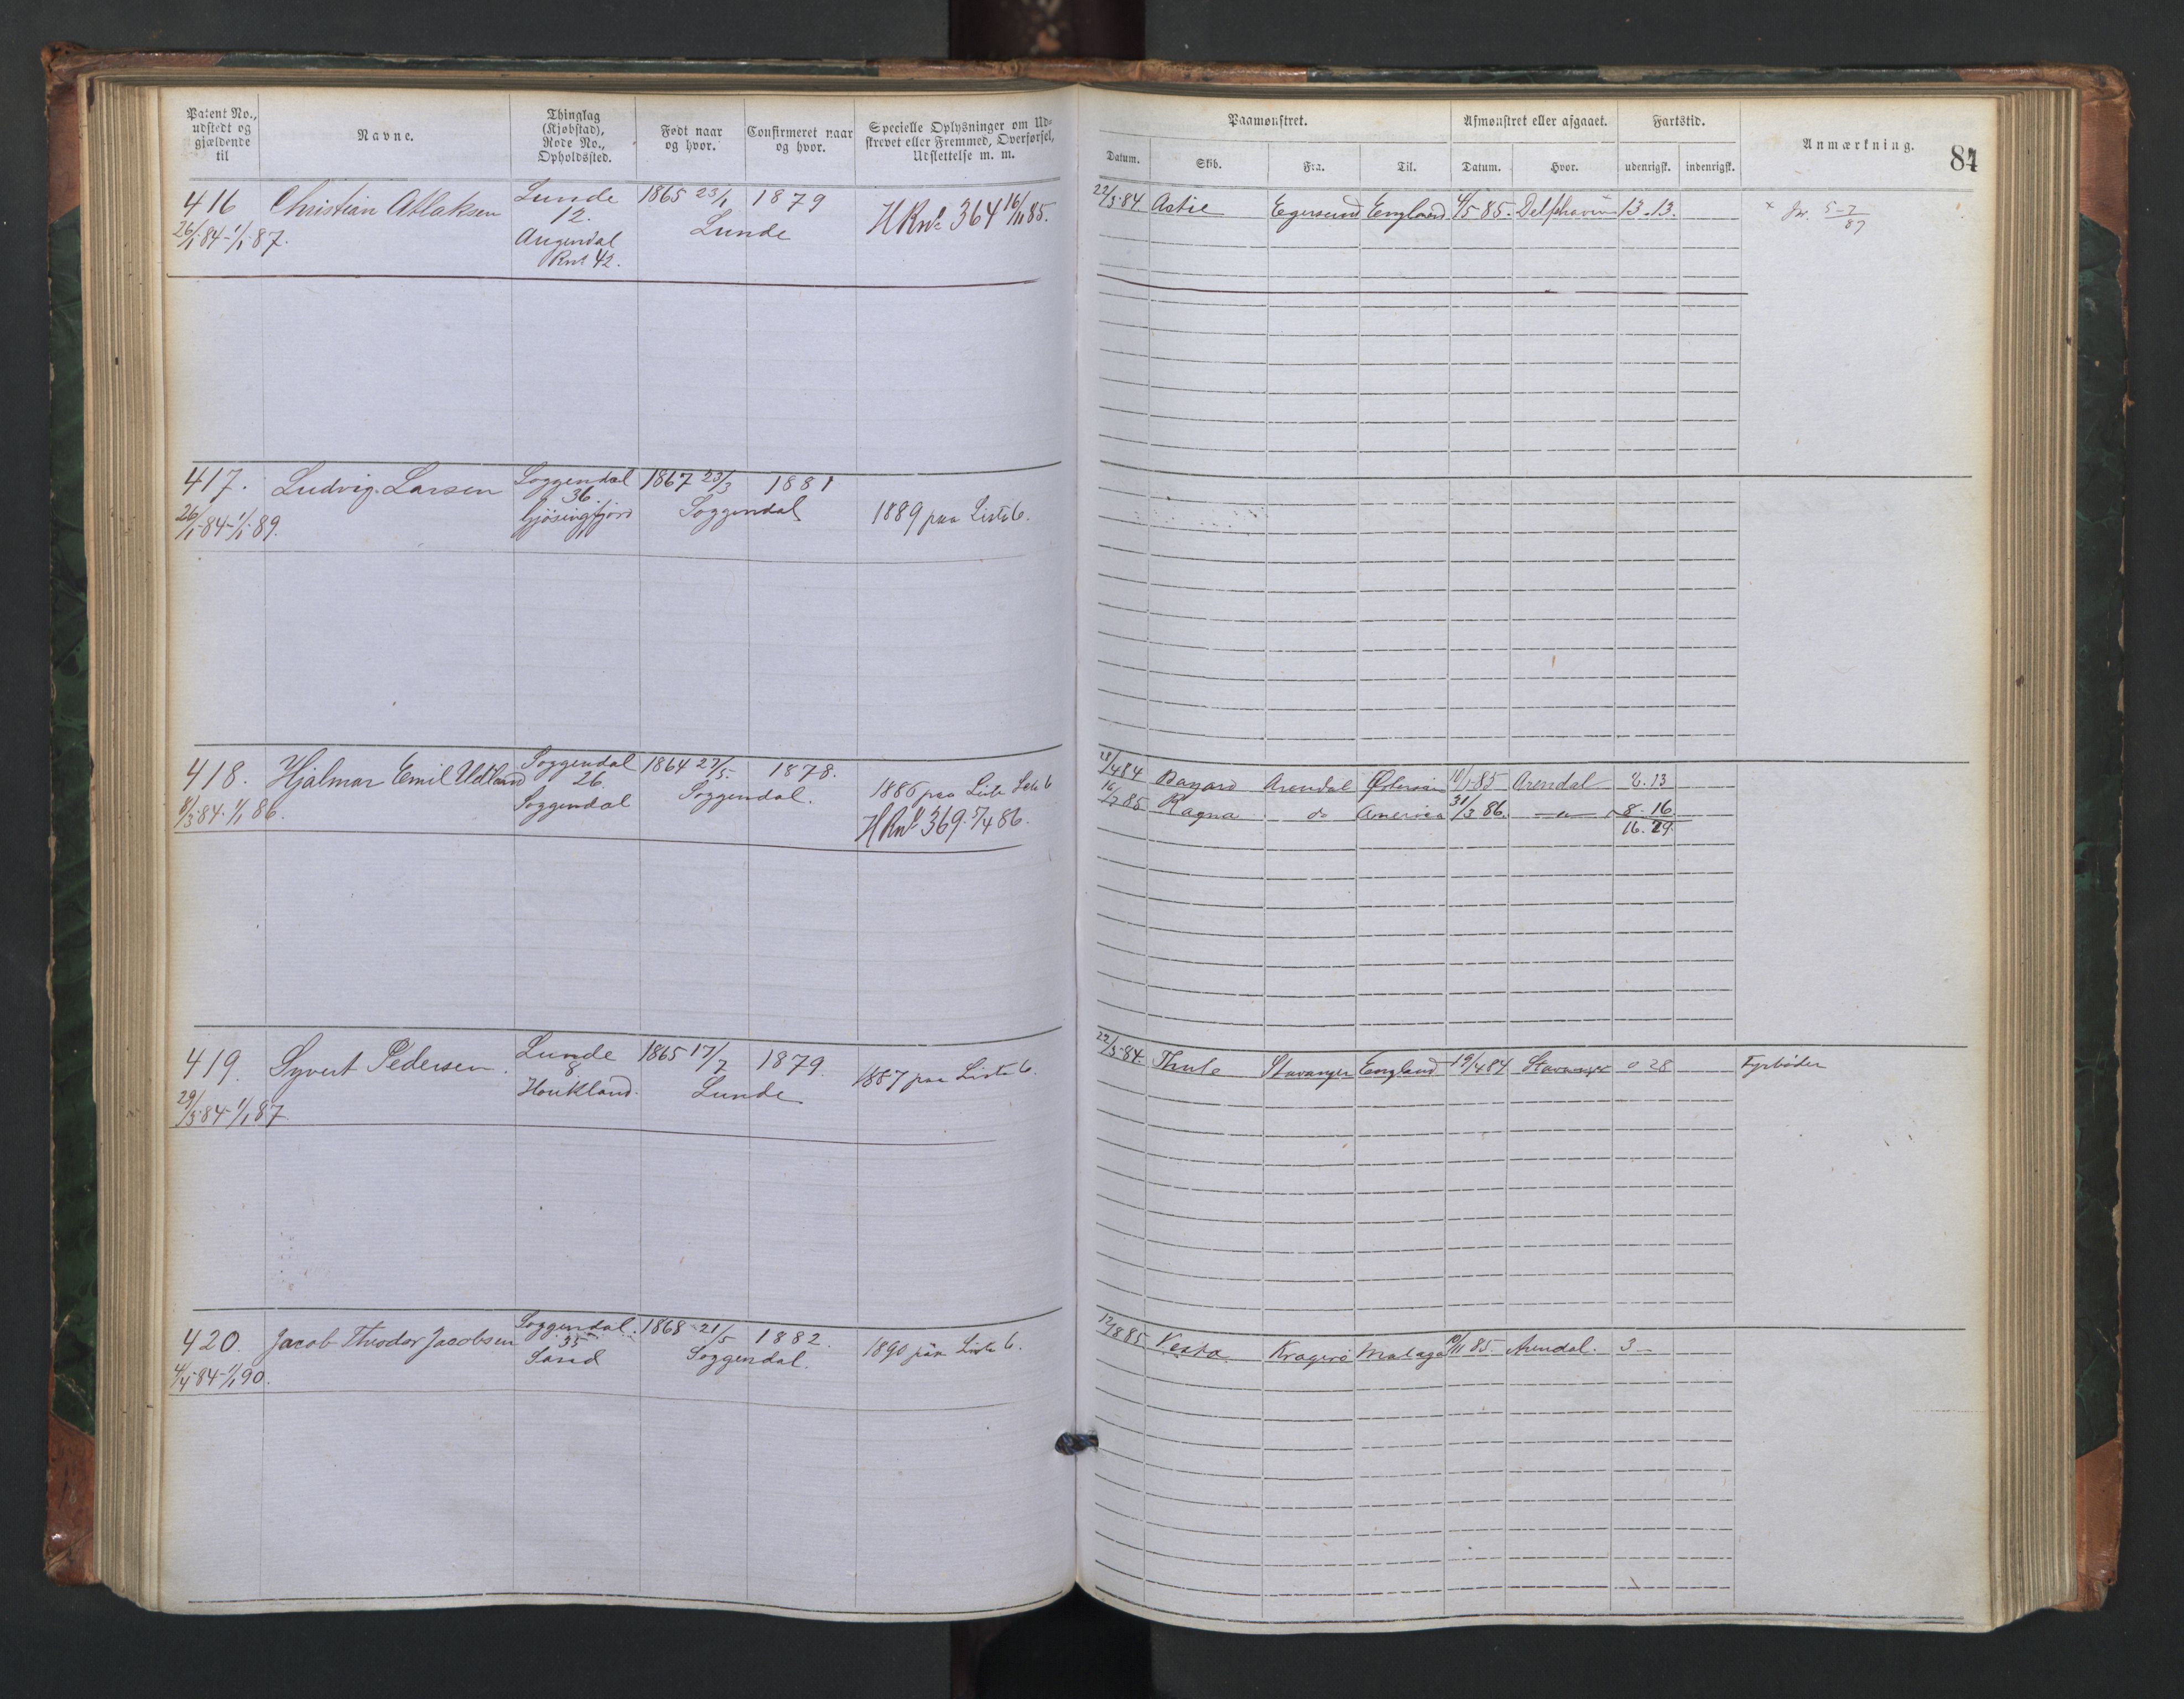 Patent No., udstedt og gjældende til
Navne.
Thinglag (Kjøbstad), Rode No., Opholdssted.
Født naar og hvor.
Confirmeret naar og hvor.
Specielle Oplysninger om Udskrevet eller Fremmed, Overførsel, Udslettelse m. m.
Paamønstret.
Afmønstret eller afgaaet.
Fartstid.
Anmærkning.
84
Datum.
Skib.
Fra.
Til.
Datum.
Hvor.
udenrigsk.
indenrigsk.
416 Christian Atlaksen Lunde 1865 23/1 1879
12. Lunde H Rn⁰ 364 16/11 85.
26/1 84-1/1 87. Augendal
Rn⁰ 42.
22/3 84 Astie Egersund England 4/5 85. Delfshaven 13.13.
417. Ludvig Larsen Soggendal 1867 23/3 1881
36. Soggendal 1889 paa Liste 6.
26/1 84-1/1 89. Gjösingfjord
418. Hjalmar Emil Udtland Soggendal 1864 27/5 1878.
26. Soggendal. 1886 paa Liste 6
8/3 84. 1/1 86. Soggendal H Rn⁰ 369. 5/4 86.
18/4 84 Bayard Arendal Östersøen 10/1 85 Arendal 8.13
16/7 85 Ragna do America 31/3 86. 8. 16
16. 29
419. Syvert Pedersen. Lunde 1865 17/7 1879.
8. Lunde 1887 paa Liste 6.
29/3 84-1/1 87 Houkland.
22/3 84. Thule Stavanger England 19/4 84 Stavanger 0 28 Fyrböder
420. Jacob Theodor Jacobsen Soggendal. 1868 21/5 1882.
35 Soggendal. 1890 paa Liste 6.
4/4 84-1/1 90. Sand
12/8 85 Vesta Kragerö Malaga 10/11 85. Arendal. 3 –